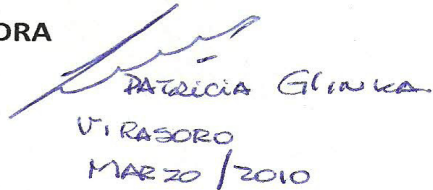 ORA
PATRICIA GLINKA
VIRASORO
MARZO / 2010